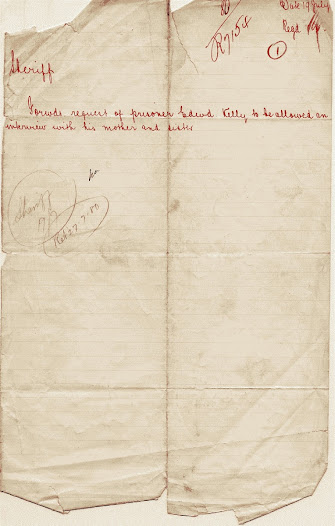 Date 19 July
R7158
Regd
1
Sheriff
Forwds request of prisoner Edwd Kelly to be allowed an
interview with his mother and sister
Sheriff
Ret 27.7.80